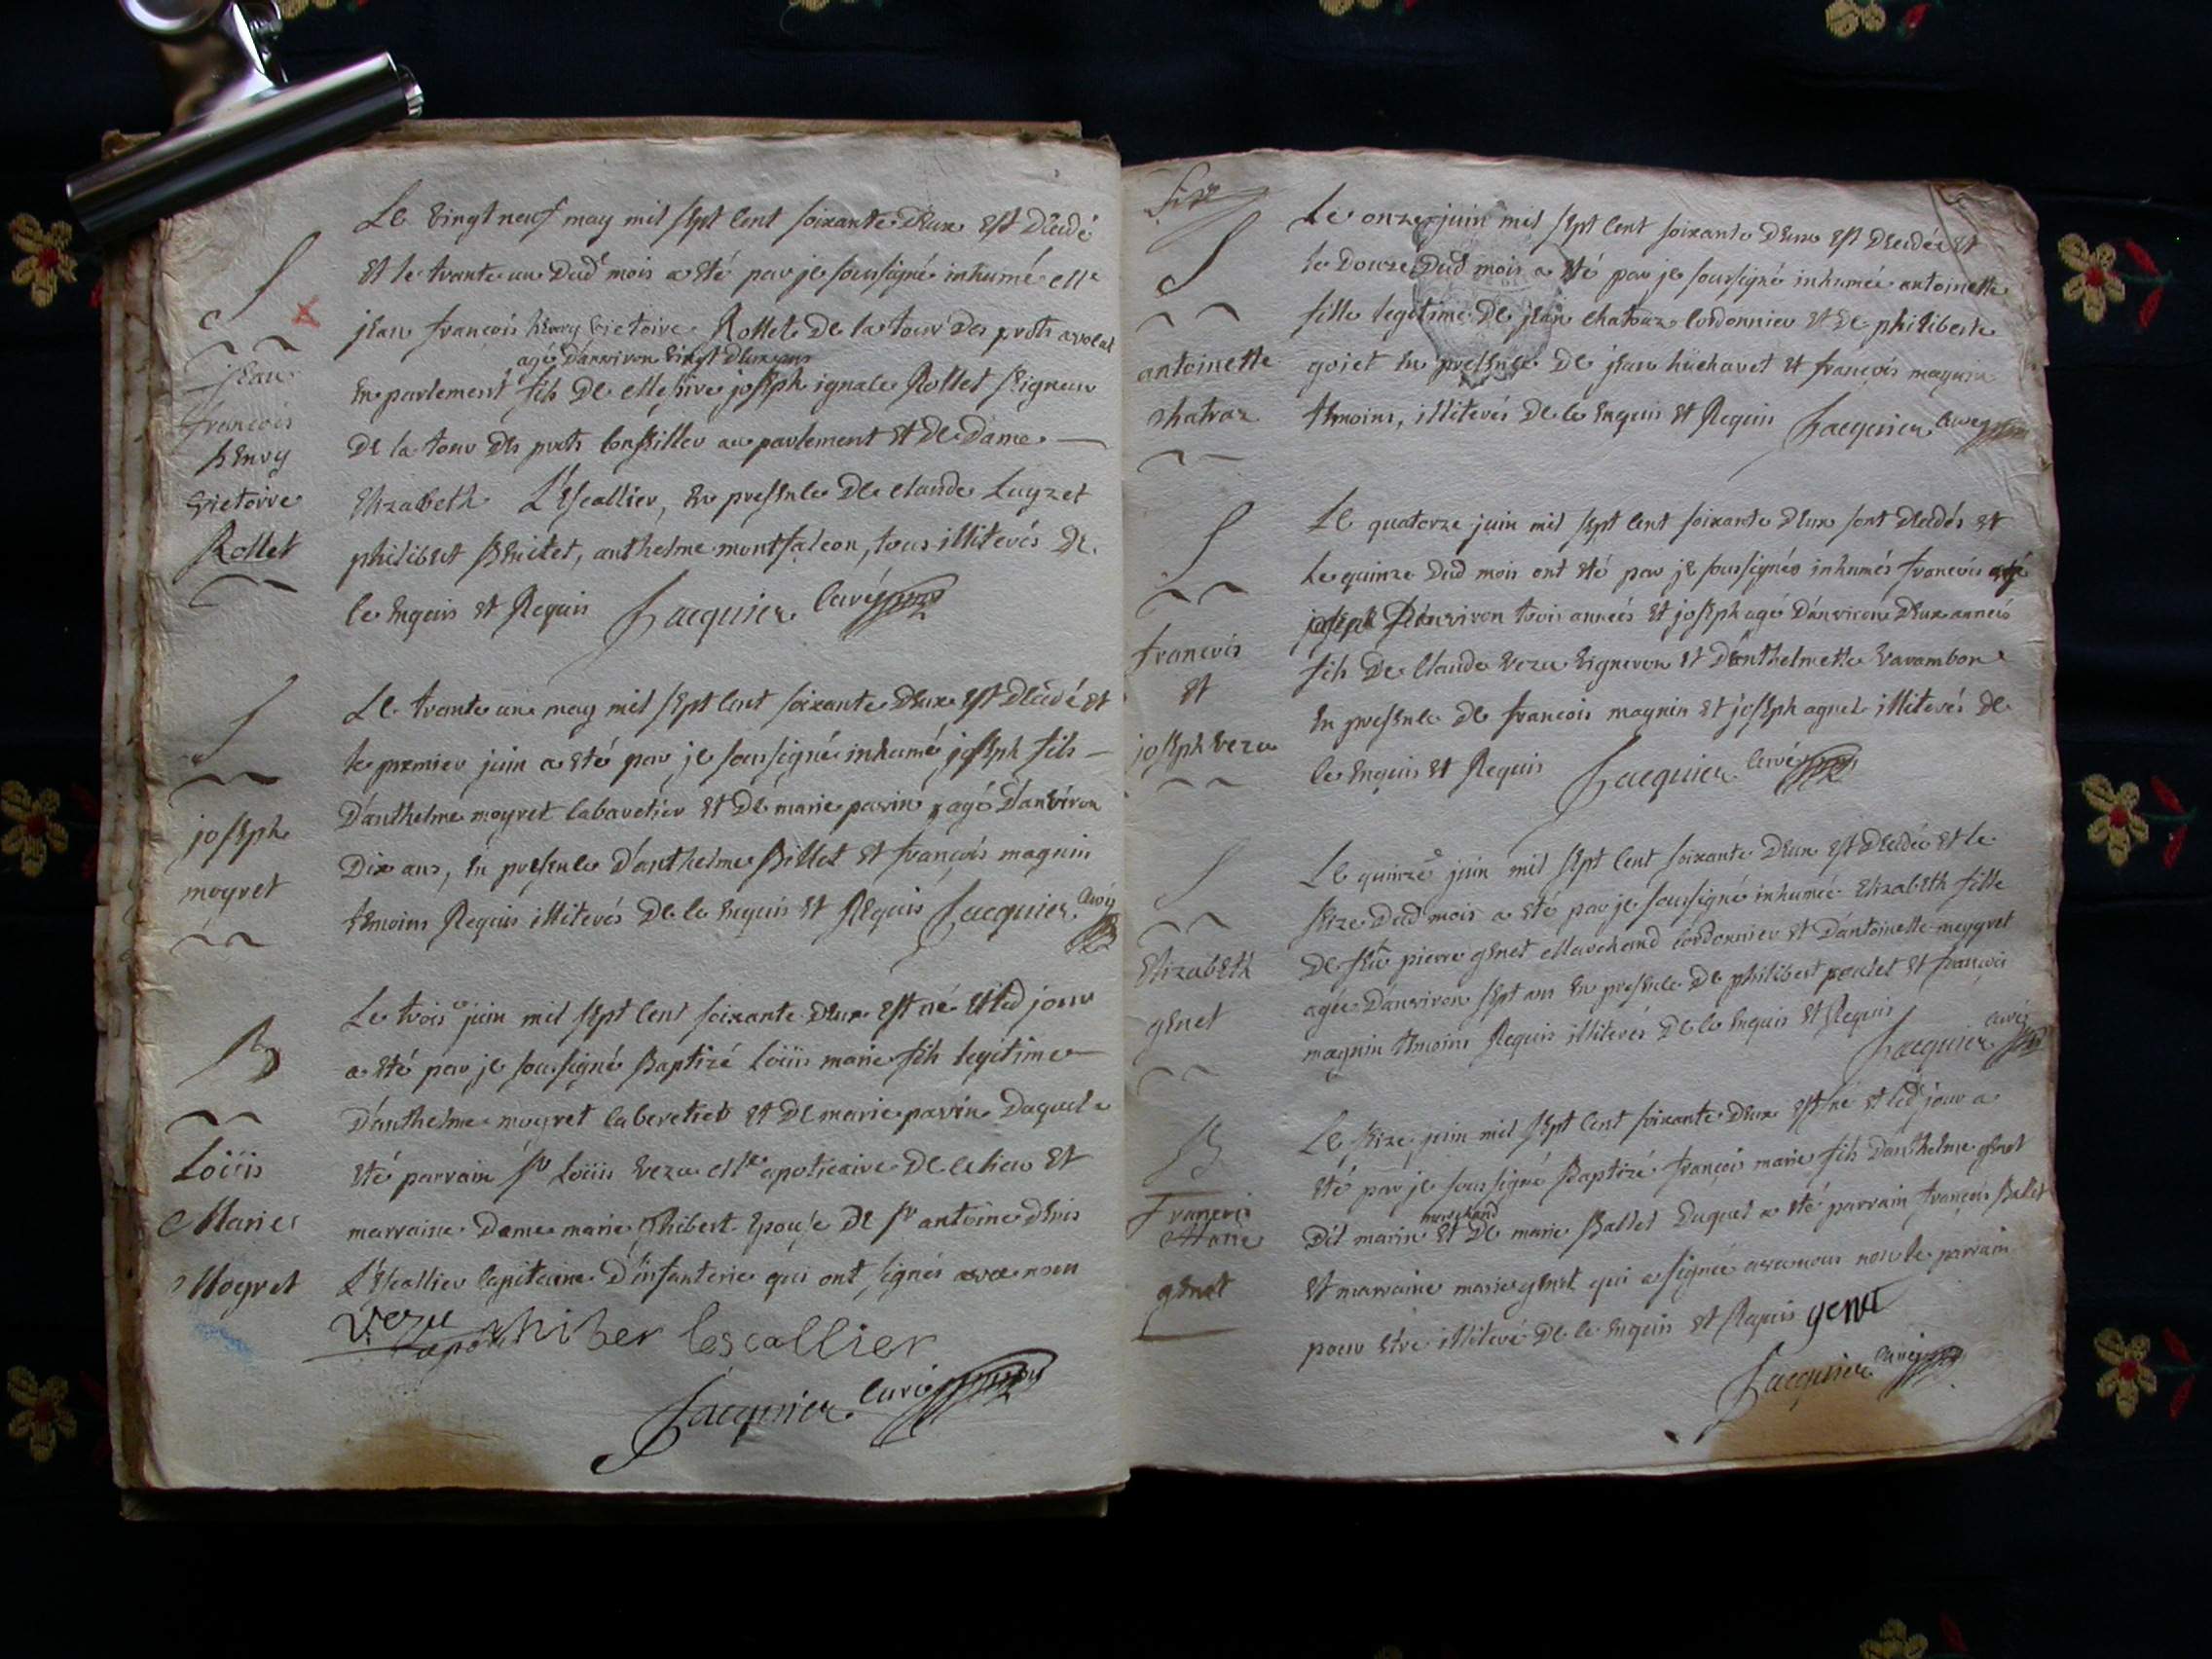 Le vingt neuf may mil sept cent soixante deux est decedé
et le trante un dud mois a eté par je soussigné inhumé
jean françois henry victoire Rollet de la tour des prots avocat
agé d'anviron vingt deux ans
en parlement fils de Messire joseph ignace Rollet seigneur
de la tour des prots conseiller au parlement et de dame
Elizabeth L'Escallier, en presence de claude Luyzet
philibert Benitet, anthelme montfalcon, tous illiterés de
ce enquis et Requis Jacquier curé
S
jean
françois
henry
victoire
Rollet
Le trante un may mil sept cent soixante deux est decedé et
le premier juin a eté par je soussigné inhumé joseph fils
d'anthelme moyret cabaretier et de marie parin agé d'anviron
dix ans, en presence d'anthelme Billet et françois magnin
temoins Requis illiterés de ce enquis et Requis Jacquier curé
S
joseph
moyret
Le trois juin mil sept cent soixante deux est né et led jour
a eté par je soussigné Baptizé Loüis marie fils legitime
d'anthelme moyret cabaretier et de marie parin duquel a
eté parrain sr Loüis vezu Me apoticaire de ce lieu et
marraine dame marie Thibert epouse de sr antoine denis
L'Escallier capitaine d'infanterie qui ont signés avec nous
B
Loüis
Marie
Moyret
Vezu
thiber lescallier
Jacquier curé
Le onze juin mil sept cent soixante deux est decedée et
le douze dud mois a eté par je soussigné inhumée antoinette
fille legitime de jean chatraz cordonnier et de philiberte
gojet en presence de jean huchavet et françois magnin
temoins, illiterés de ce enquis et Requis Jacquier curé
S
antoinette
chatraz
Le quatorze juin mil sept cent soixante deux sont decedés et
le quinze dud mois ont eté par je soussigné inhumés françois agé
d'anviron trois années et joseph agé d'anviron deux années
fils de claude vezu vigneron et d'anthelmette varambon
en presence de françois magnin et joseph agnel illiterés de
ce enquis et Requis Jacquier curé
S
françois
et
joseph vezu
Le quinze juin mil sept cent soixante deux est decedée et le
seize dud mois a eté par je soussigné inhumée Elizabeth fille
de feu pierre genet Marchand cordonnier et d'antoinette meygret
agée d'anviron sept ans en presence de philibert poulet et françois
magnin temoins Requis illiterés de ce enquis et Requis
Jacquier curé
S
Elizabeth
genet
Le seize juin mil sept cent soixante deux est né et led jour a
eté par je soussigné Baptizé françois marie fils d'anthelme genet
marchand
dit marin et de marie Ballet duquel a eté parrain françois Balet
et marraine marie genet qui a signée avec nous non le parrain
pour etre illiteré de ce enquis et Requis genet
Jacquier curé
B
françois
Marie
genet